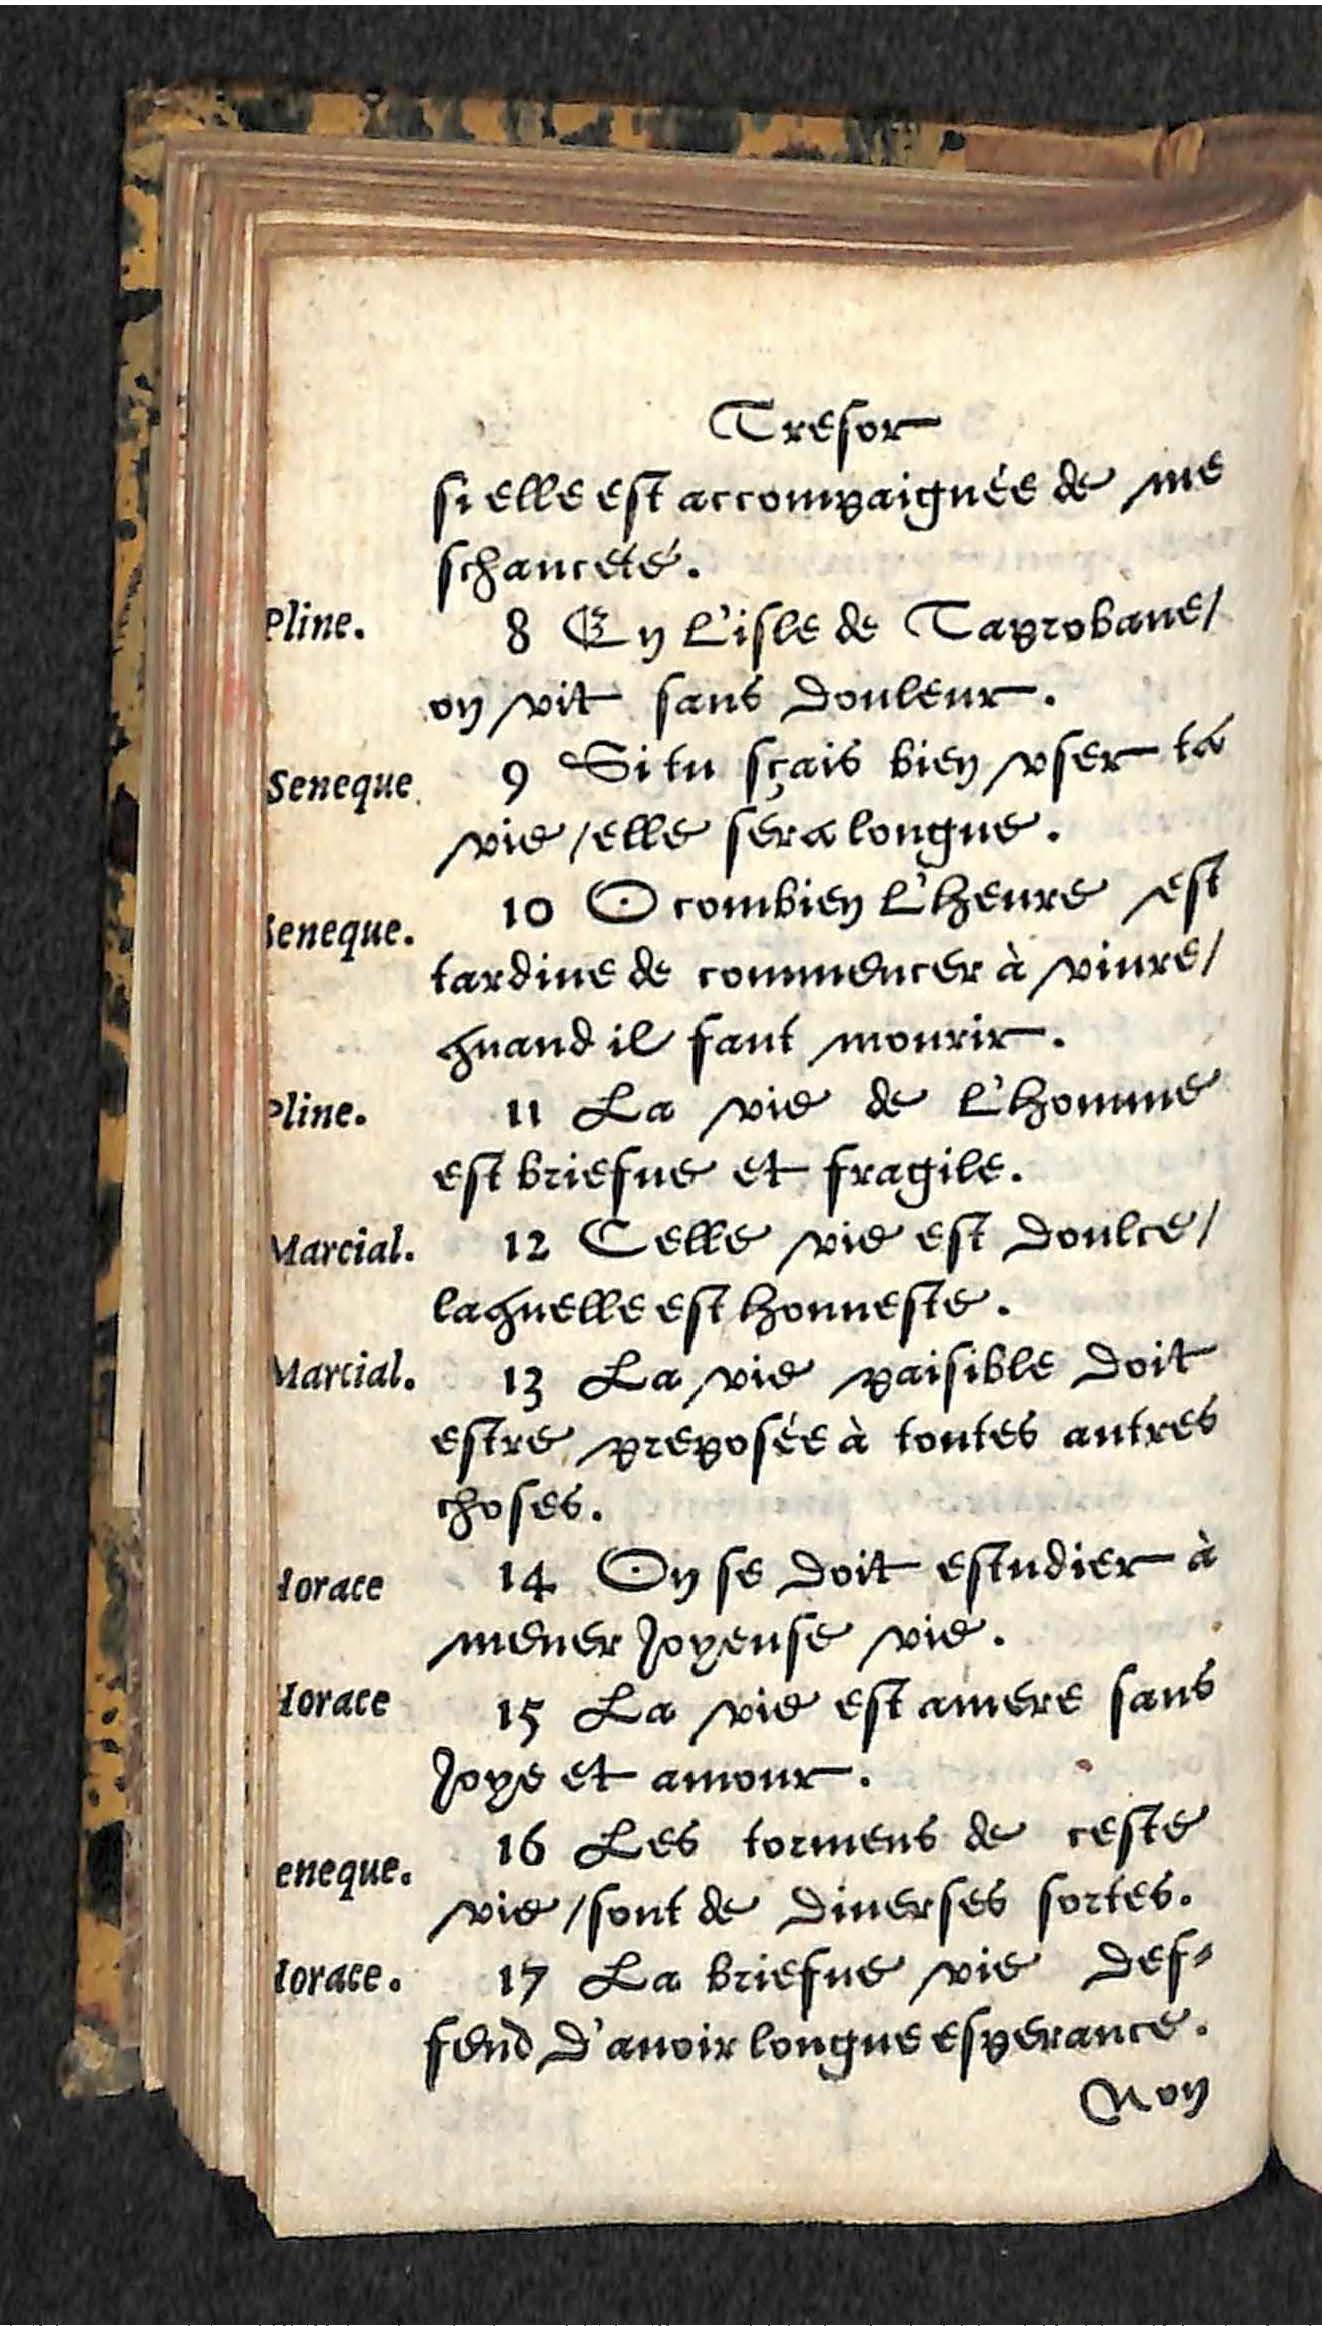 Tresor
si elle est accompaignée de me
schanceté.
Pline. 8 En l'isle de Taprobane/
on vit sans douleur.
Seneque 9 Si tu sçais bien vser ta
vie/elle sera longue.
Seneque. 10 O combien l'heure est
tardiue de commencer à viure/
quand il faut mourir.
Pline. 11 La vie de l'homme
est briefue et fragile.
Marcial. 12 Celle vie est doulce/
laquelle est honneste.
Marcial. 13 La vie paisible doit
estre preposée à toutes autres
choses.
Horace 14 On se doit estudier à
mener joyeuse vie.
Horace 15 La vie est amere sans
joye et amour.
eneque. 16 Les tormens de ceste
vie/sont de diuerses sortes.
Horace. 17 La briefue vie def-
fend d'auoir longue esperance.
Non